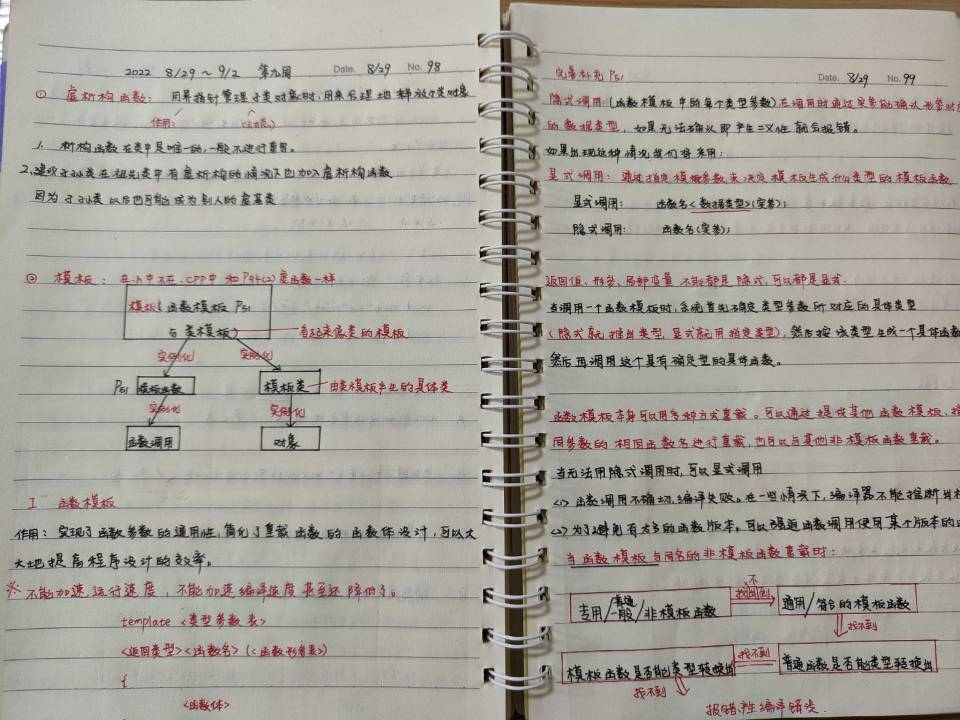 2022 8/29~9/2 第九周 Date. 8/29 No. 98
① 虚析构函数: 用基指针管理子类对象时,用来合理地释放子类对象
作用:
1. 析构函数在类中是唯一的,一般不进行重载。
2.建议子孙类在祖先类中有虚析构的情况下也加入虚析构函数
因为子孙类以后也可能成为别人的虚基类
② 模板: 在.h中不在.CPP中 和P94(2)虚函数一样
模板(函数模板 P51
与类模板) 看起来像类的模板
实例化 实例化
P51 模板函数 模板类 由类模板产生的具体类
实例化 实例化
函数调用 对象
I 函数模板
作用: 实现了函数参数的通用性,简化了重载函数的函数体设计,可以大
大地提高程序设计的效率。
※ 不能加速运行速度,不能加速编译速度甚至还降低了。
template <类型参数表>
<返回类型><函数名>(<函数形参表>)
{
<函数体>
完善补充 P51
Date. 8/29 No. 99
隐式调用:(函数模板中的每个类型参数)在调用时通过实参能确认形参对
的数据类型,如果无法确认即产生二义性就会报错。
如果出现这种情况我们将采用:
显式调用: 通过指定模板参数来决定模板生成什么类型的模板函数
显式调用: 函数名<数据类型>(实参);
隐式调用: 函数名(实参);
返回值、形参、局部变量不能都是隐式,可以都是显式.
当调用一个函数模板时,系统首先确定类型参数所对应的具体类型
(隐式就推出类型,显式就用指定类型),然后按该类型生成一个具体函数
然后再调用这个具有确定型的具体函数。
函数模板本身可以用多种方式重载。可以通过提供其他函数模板,指
同参数的相同函数名进行重载,也可以与其他非模板函数重载。
当无法用隐式调用时,可以显式调用
<1> 函数调用不确切,编译失败。在一些情况下,编译器不能推断出模
<2> 为了避免有太多的函数版本,可以强迫函数调用使用某个版本的
当函数模板与同名的非模板函数重载时:
专用/普通/一般/非模板函数 找不到 通用/符合的模板函数
找不到
模板函数是否能类型转换出 找不到 普通函数是否能类型转换出
找不到
报错,产生编译错误.